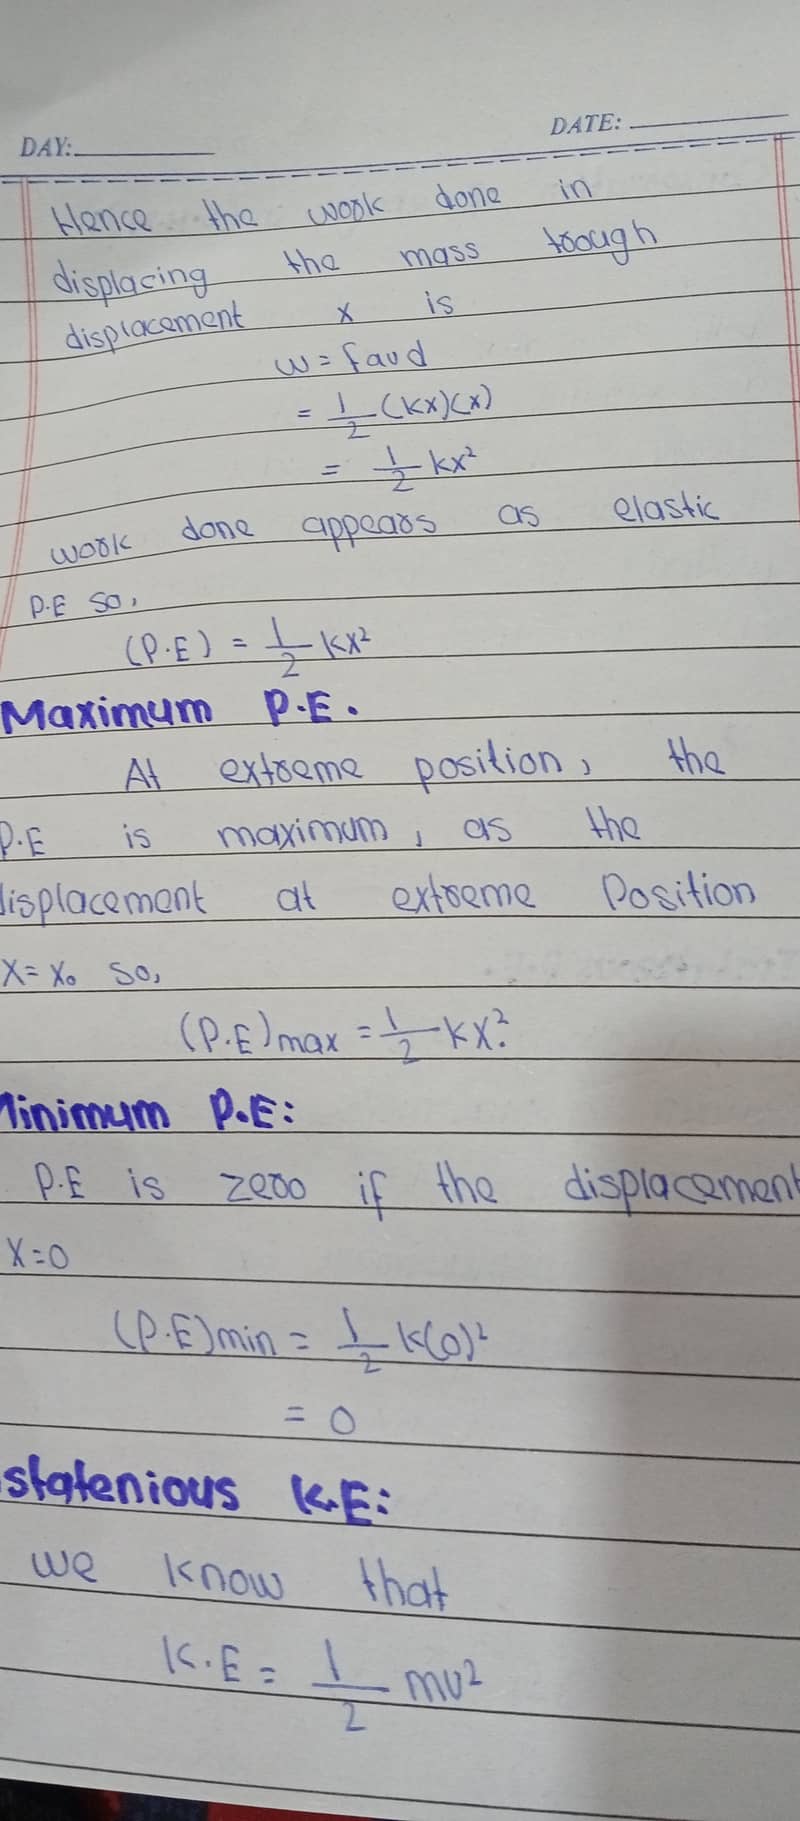 DAY:
DATE:
Hence the work done in
displacing the mass trough
displacement x is
w = Favd
= 1/2 (kx)(x)
= 1/2 kx²
work done appears as elastic
P.E so,
(P.E) = 1/2 kx²
Maximum P.E.
At extreme position, the
P.E is maximum, as the
displacement at extreme Position
x = x₀ so,
(P.E)max = 1/2 kx₀²
Minimum P.E:
P.E is zero if the displacement
x=0
(P.E)min = 1/2 k(0)²
= 0
statenious K.E:
we know that
K.E = 1/2 mv²